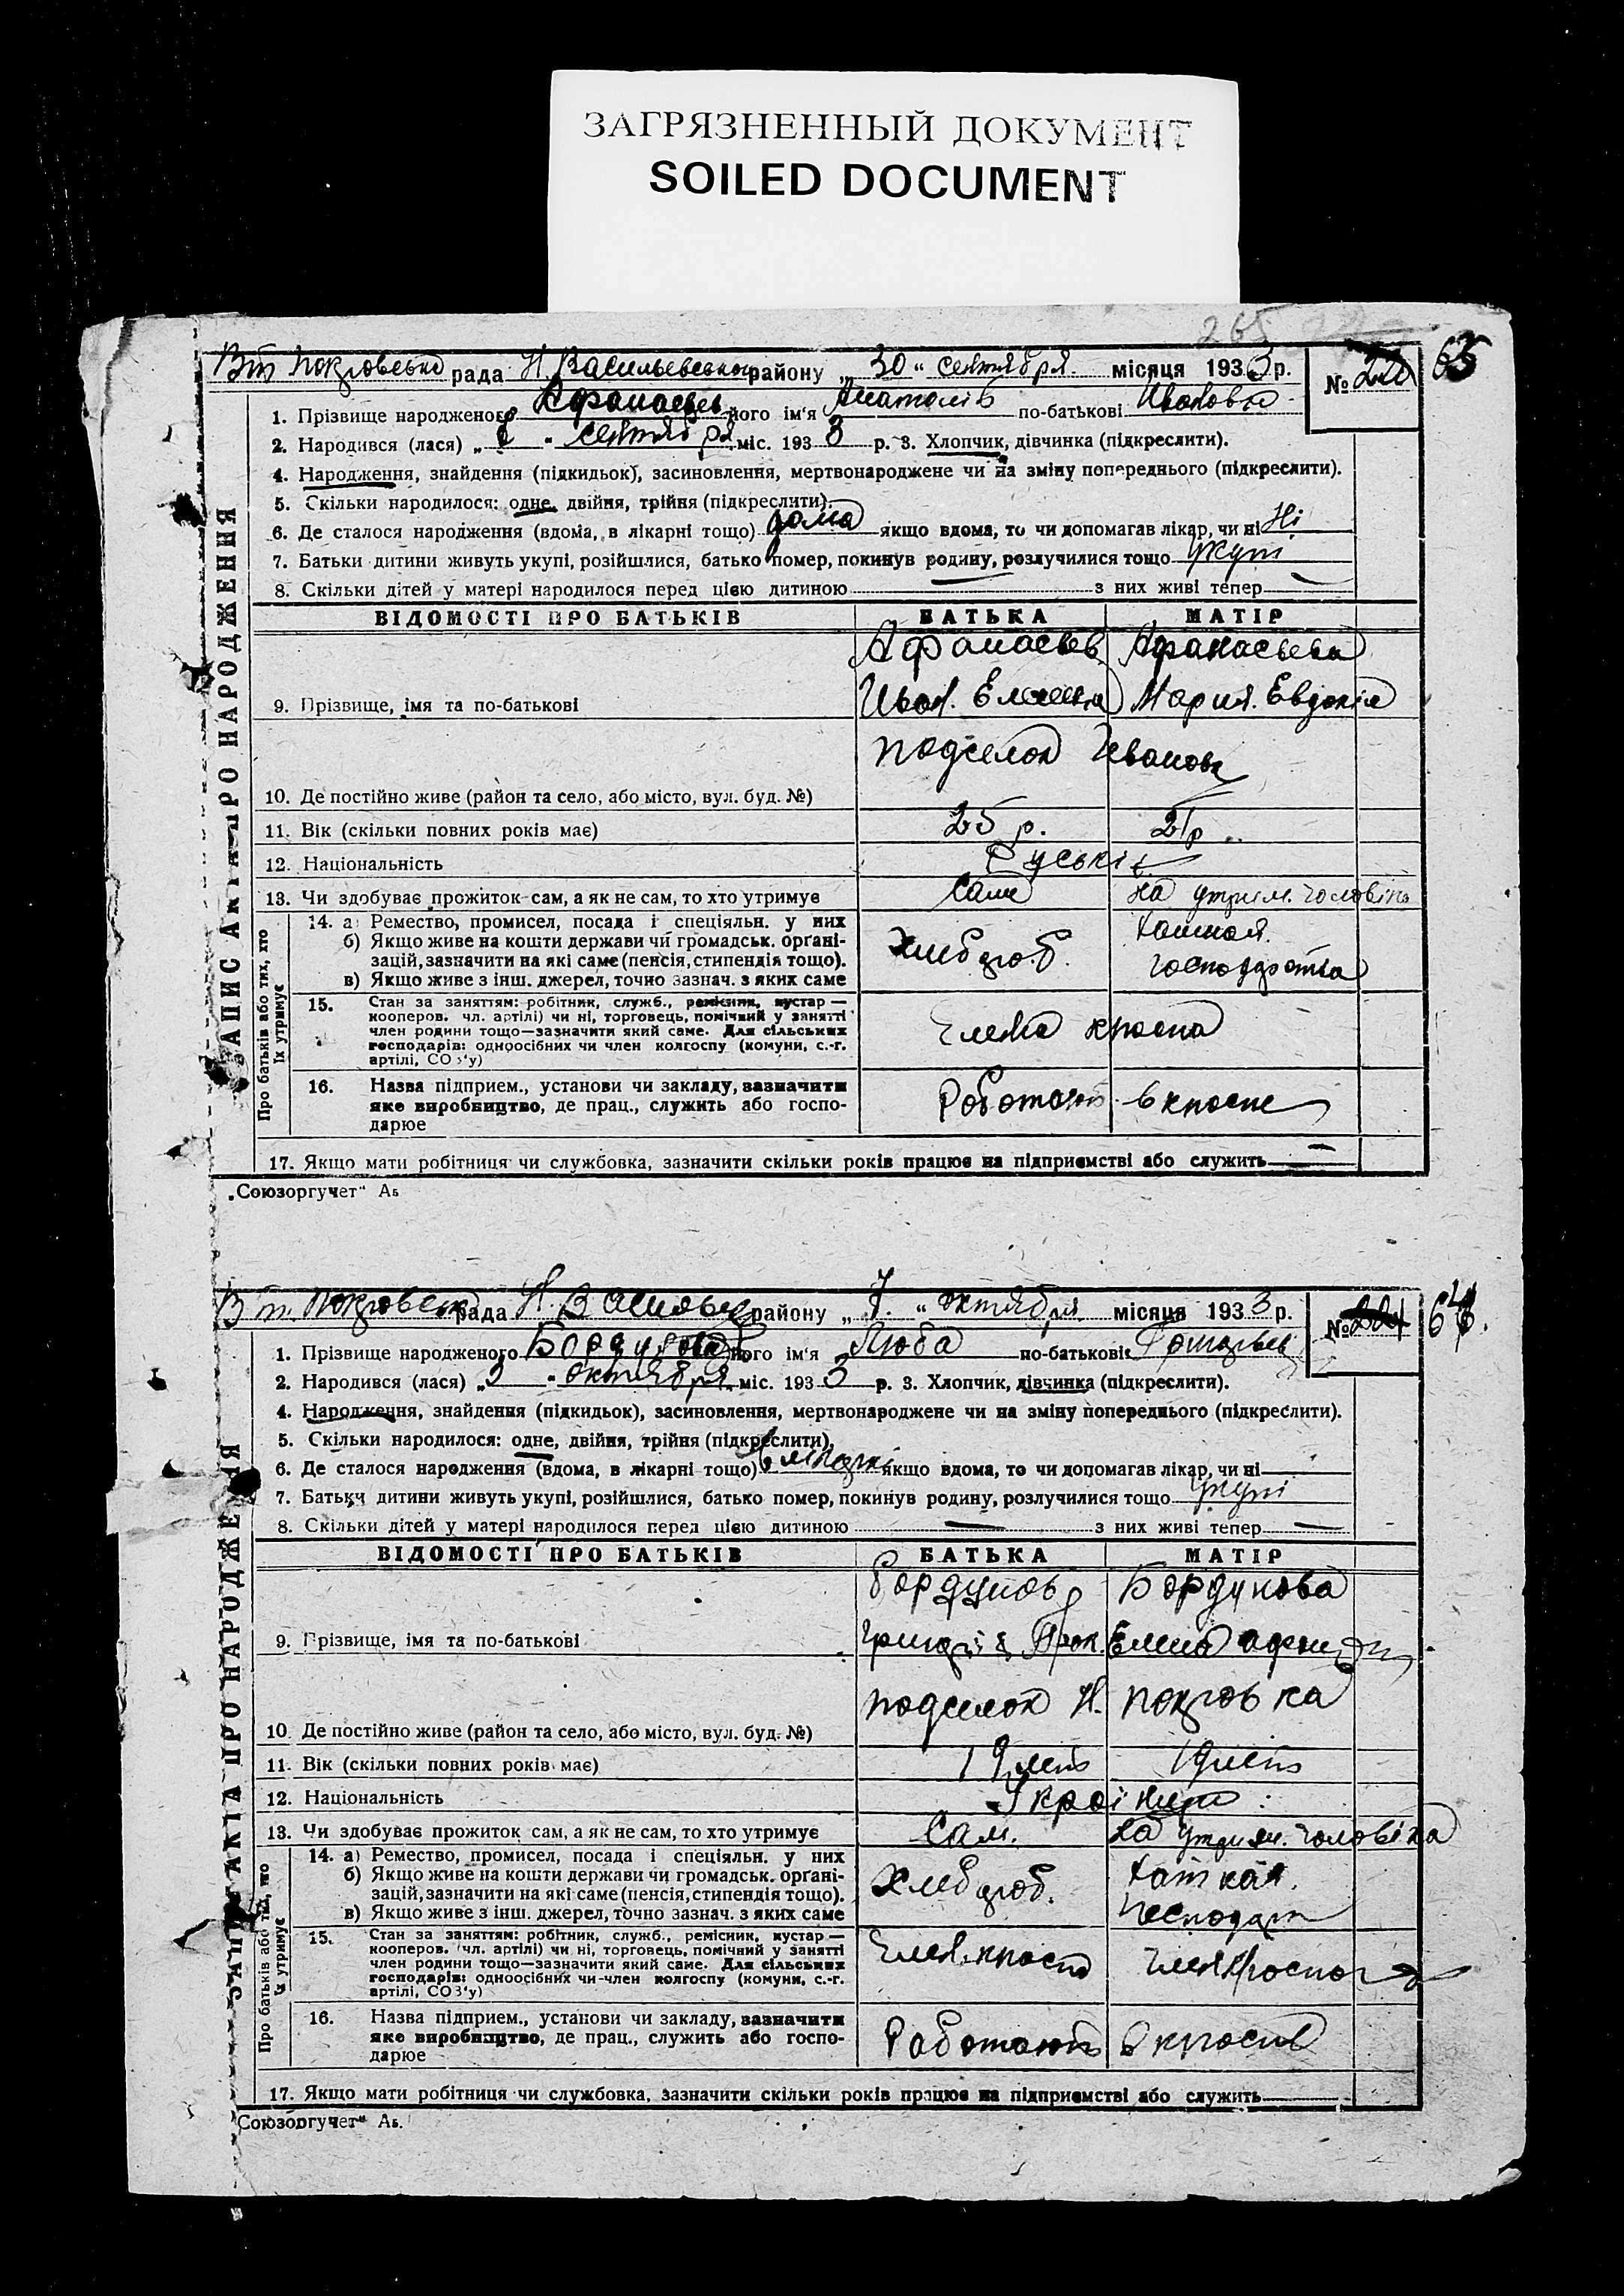 ЗАГРЯЗНЕННЫЙ ДОКУМЕНТ
SOILED DOCUMENT
265
65
Вт Покровсько рада Н. Васильевського району „ 30 “ сентября місяця 1933 р. №
ЗАПИС АКТА ПРО НАРОДЖЕННЯ
1. Прізвище народженого його ім'я Анатолій по-батькові
2. Народився (лася) „ “ сентября міс. 1933 р. 3. Хлопчик, дівчинка (підкреслити).
4. Народження, знайдення (підкидьок), засиновлення, мертвонароджене чи на зміну попереднього (підкреслити).
5. Скільки народилося: одне, двійня, трійня (підкреслити).
6. Де сталося народження (вдома, в лікарні тощо) дома якщо вдома, то чи допомагав лікар, чи ні Ні
7. Батьки дитини живуть укупі, розійшлися, батько помер, покинув родину, розлучилися тощо укупі
8. Скільки дітей у матері народилося перед цією дитиною — з них живі тепер —
ВІДОМОСТІ ПРО БАТЬКІВ БАТЬКА МАТІР
Афанасьев Афанасьева
9. Прізвище, імя та по-батькові Иван. Мария. Евдокія
подселок
10. Де постійно живе (район та село, або місто, вул. буд. №)
11. Вік (скільки повних років має) 25 р. 21 р.
12. Національність Руські
13. Чи здобуває прожиток сам, а як не сам, то хто утримує Сам на утрим. чоловіка
Про батьків або тих, хто їх утримує
14. а) Ремество, промисел, посада і спеціяльн. у них
б) Якщо живе на кошти держави чи громадськ. орґані-
зацій, зазначити на які саме (пенсія, стипендія тощо).
в) Якщо живе з інш. джерел, точно зазнач. з яких саме
Хлебороб. господарства
15. Стан за заняттям: робітник, служб., ремісник, кустар —
кооперов. чл. артілі) чи ні, торговець, помічний у занятті
член родини тощо—зазначити який саме. Для сільських
господарів: одноосібних чи член колгоспу (комуни, с.-г.
артілі, СОЗ'у)
Члена
16. Назва підприєм., установи чи закладу, зазначити
яке виробництво, де прац., служить або госпо-
дарює
Роботают в
17. Якщо мати робітниця чи службовка, зазначити скільки років працює на підприємстві або служить —
„Союзоргучет“ Аь
Вт. Покровсько рада Н. району „ 7. “ октября місяця 1933 р. №
64
ЗАПИС АКТА ПРО НАРОДЖЕННЯ
1. Прізвище народженого Бордунова його ім'я Люба по-батькові
2. Народився (лася) „ 3 “ октября міс. 1933 р. 3. Хлопчик, дівчинка (підкреслити).
4. Народження, знайдення (підкидьок), засиновлення, мертвонароджене чи на зміну попереднього (підкреслити).
5. Скільки народилося: одне, двійня, трійня (підкреслити),
6. Де сталося народження (вдома, в лікарні тощо) в лікарні якщо вдома, то чи допомагав лікар, чи ні —
7. Батьки дитини живуть укупі, розійшлися, батько помер, покинув родину, розлучилися тощо укупі
8. Скільки дітей у матері народилося перед цією дитиною — з них живі тепер —
ВІДОМОСТІ ПРО БАТЬКІВ БАТЬКА МАТІР
Бордунов Бордунова
9. Прізвище, імя та по-батькові Елена
подселок Н. Покровка
10. Де постійно живе (район та село, або місто, вул. буд. №)
11. Вік (скільки повних років має) 19 лет 19 лет
12. Національність
13. Чи здобуває прожиток сам, а як не сам, то хто утримує Сам. на утрим. чоловіка
Про батьків або тих, хто їх утримує
14. а) Ремество, промисел, посада і спеціяльн. у них
б) Якщо живе на кошти держави чи громадськ. орґані-
зацій, зазначити на які саме (пенсія, стипендія тощо).
в) Якщо живе з інш. джерел, точно зазнач. з яких саме
Хлебороб.
15. Стан за заняттям: робітник, служб., ремісник, кустар —
кооперов. чл. артілі) чи ні, торговець, помічний у занятті
член родини тощо—зазначити який саме. Для сільських
господарів: одноосібних чи член колгоспу (комуни, с.-г.
артілі, СОЗ'у)
16. Назва підприєм., установи чи закладу, зазначити
яке виробництво, де прац., служить або госпо-
дарює
Работают в
17. Якщо мати робітниця чи службовка, зазначити скільки років працює на підприємстві або служить —
Союзоргучет“ Аь.